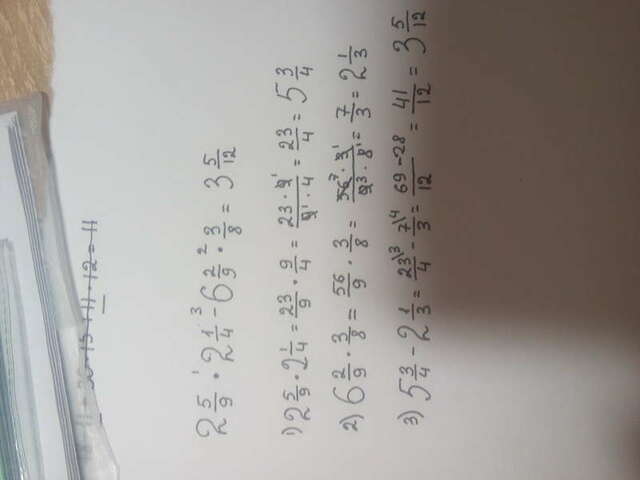 2 5/9 ·¹ 2 1/4 -³ 6 2/9 ·² 3/8 = 3 5/12
1) 2 5/9 · 2 1/4 = 23/9 · 9/4 = (23 · 9¹)/(9¹ · 4) = 23/4 = 5 3/4
2) 6 2/9 · 3/8 = 56/9 · 3/8 = (56⁷ · 3¹)/(9³ · 8¹) = 7/3 = 2 1/3
3) 5 3/4 - 2 1/3 = 23\³/4 - 7\⁴/3 = (69-28)/12 = 41/12 = 3 5/12